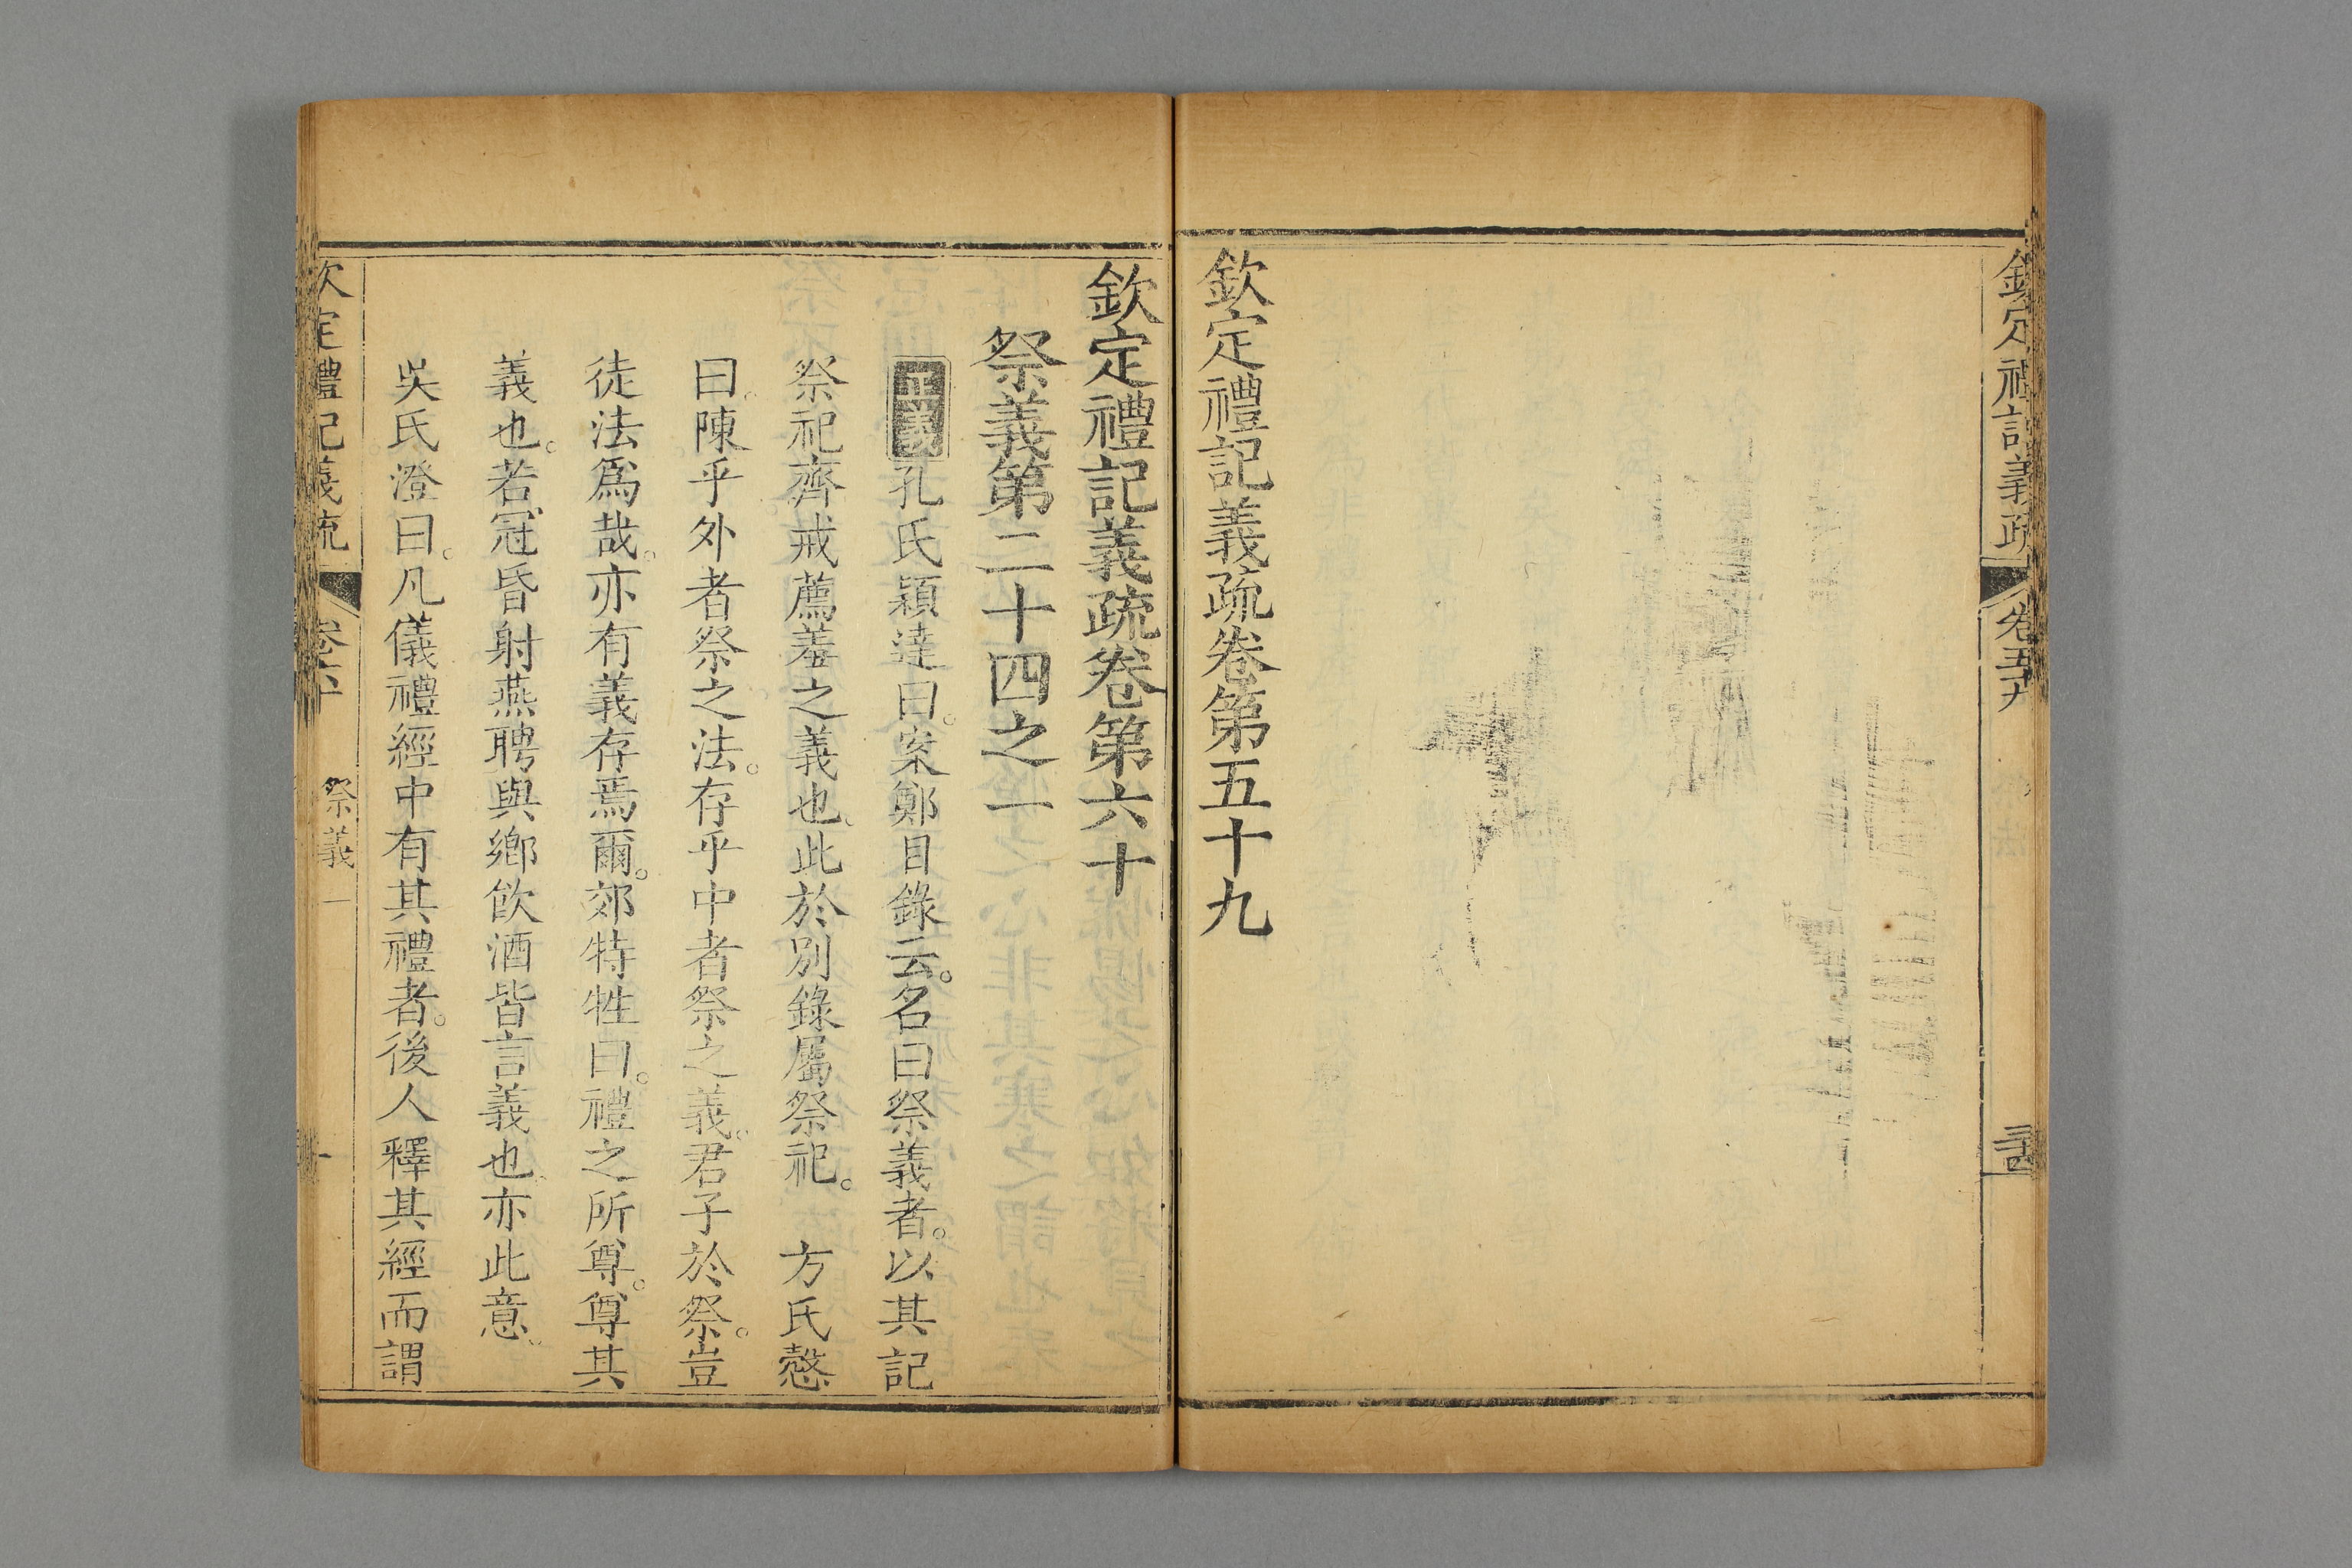 欽定禮記義疏 卷五十九 三十四
欽定禮記義疏卷第五十九
欽定禮記義疏卷第六十
祭義第二十四之一
正義孔氏穎達曰。案鄭目錄云。名曰祭義者。以其記
祭祀齊戒薦羞之義也。此於別錄屬祭祀。 方氏慤
曰。陳乎外者祭之法。存乎中者祭之義。君子於祭。豈
徒法爲哉。亦有義存焉爾。郊特牲曰。禮之所尊。尊其
義也。若冠昏射燕聘與鄉飲酒皆言義也。亦此意。
吳氏澄曰。凡儀禮經中有其禮者。後人釋其經而謂
欽定禮記義疏 卷六十 祭義一 一